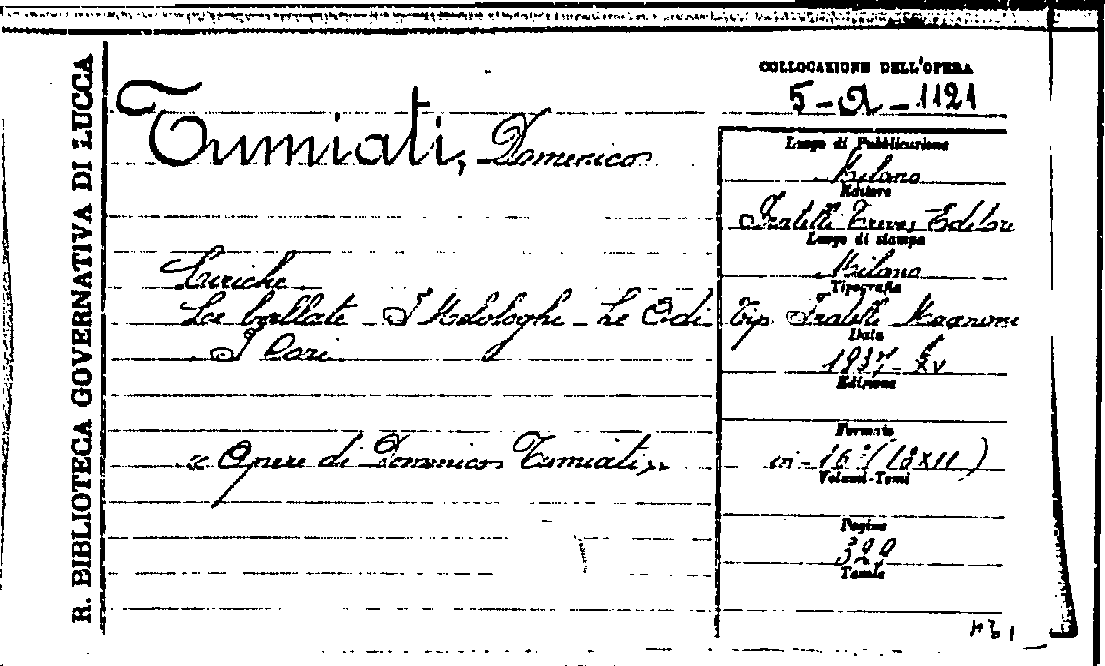 R. BIBLIOTECA GOVERNATIVA DI LUCCA
COLLOCAZIONE DELL'OPERA
5-a-1121
Tumiati, Domenico
Liriche
Le ballate - I Melologhi - Le Odi
I Cori
"Opere di Domenico Tumiati"
Luogo di Pubblicazione
Milano
Editore
Fratelli Treves Editore
Luogo di stampa
Milano
Tipografia
Tip. Fratelli Magnani
Data
1937-XV
Edizione
Formato
in-16° (18x11)
Volumi-Tomi
Pagine
Tavole